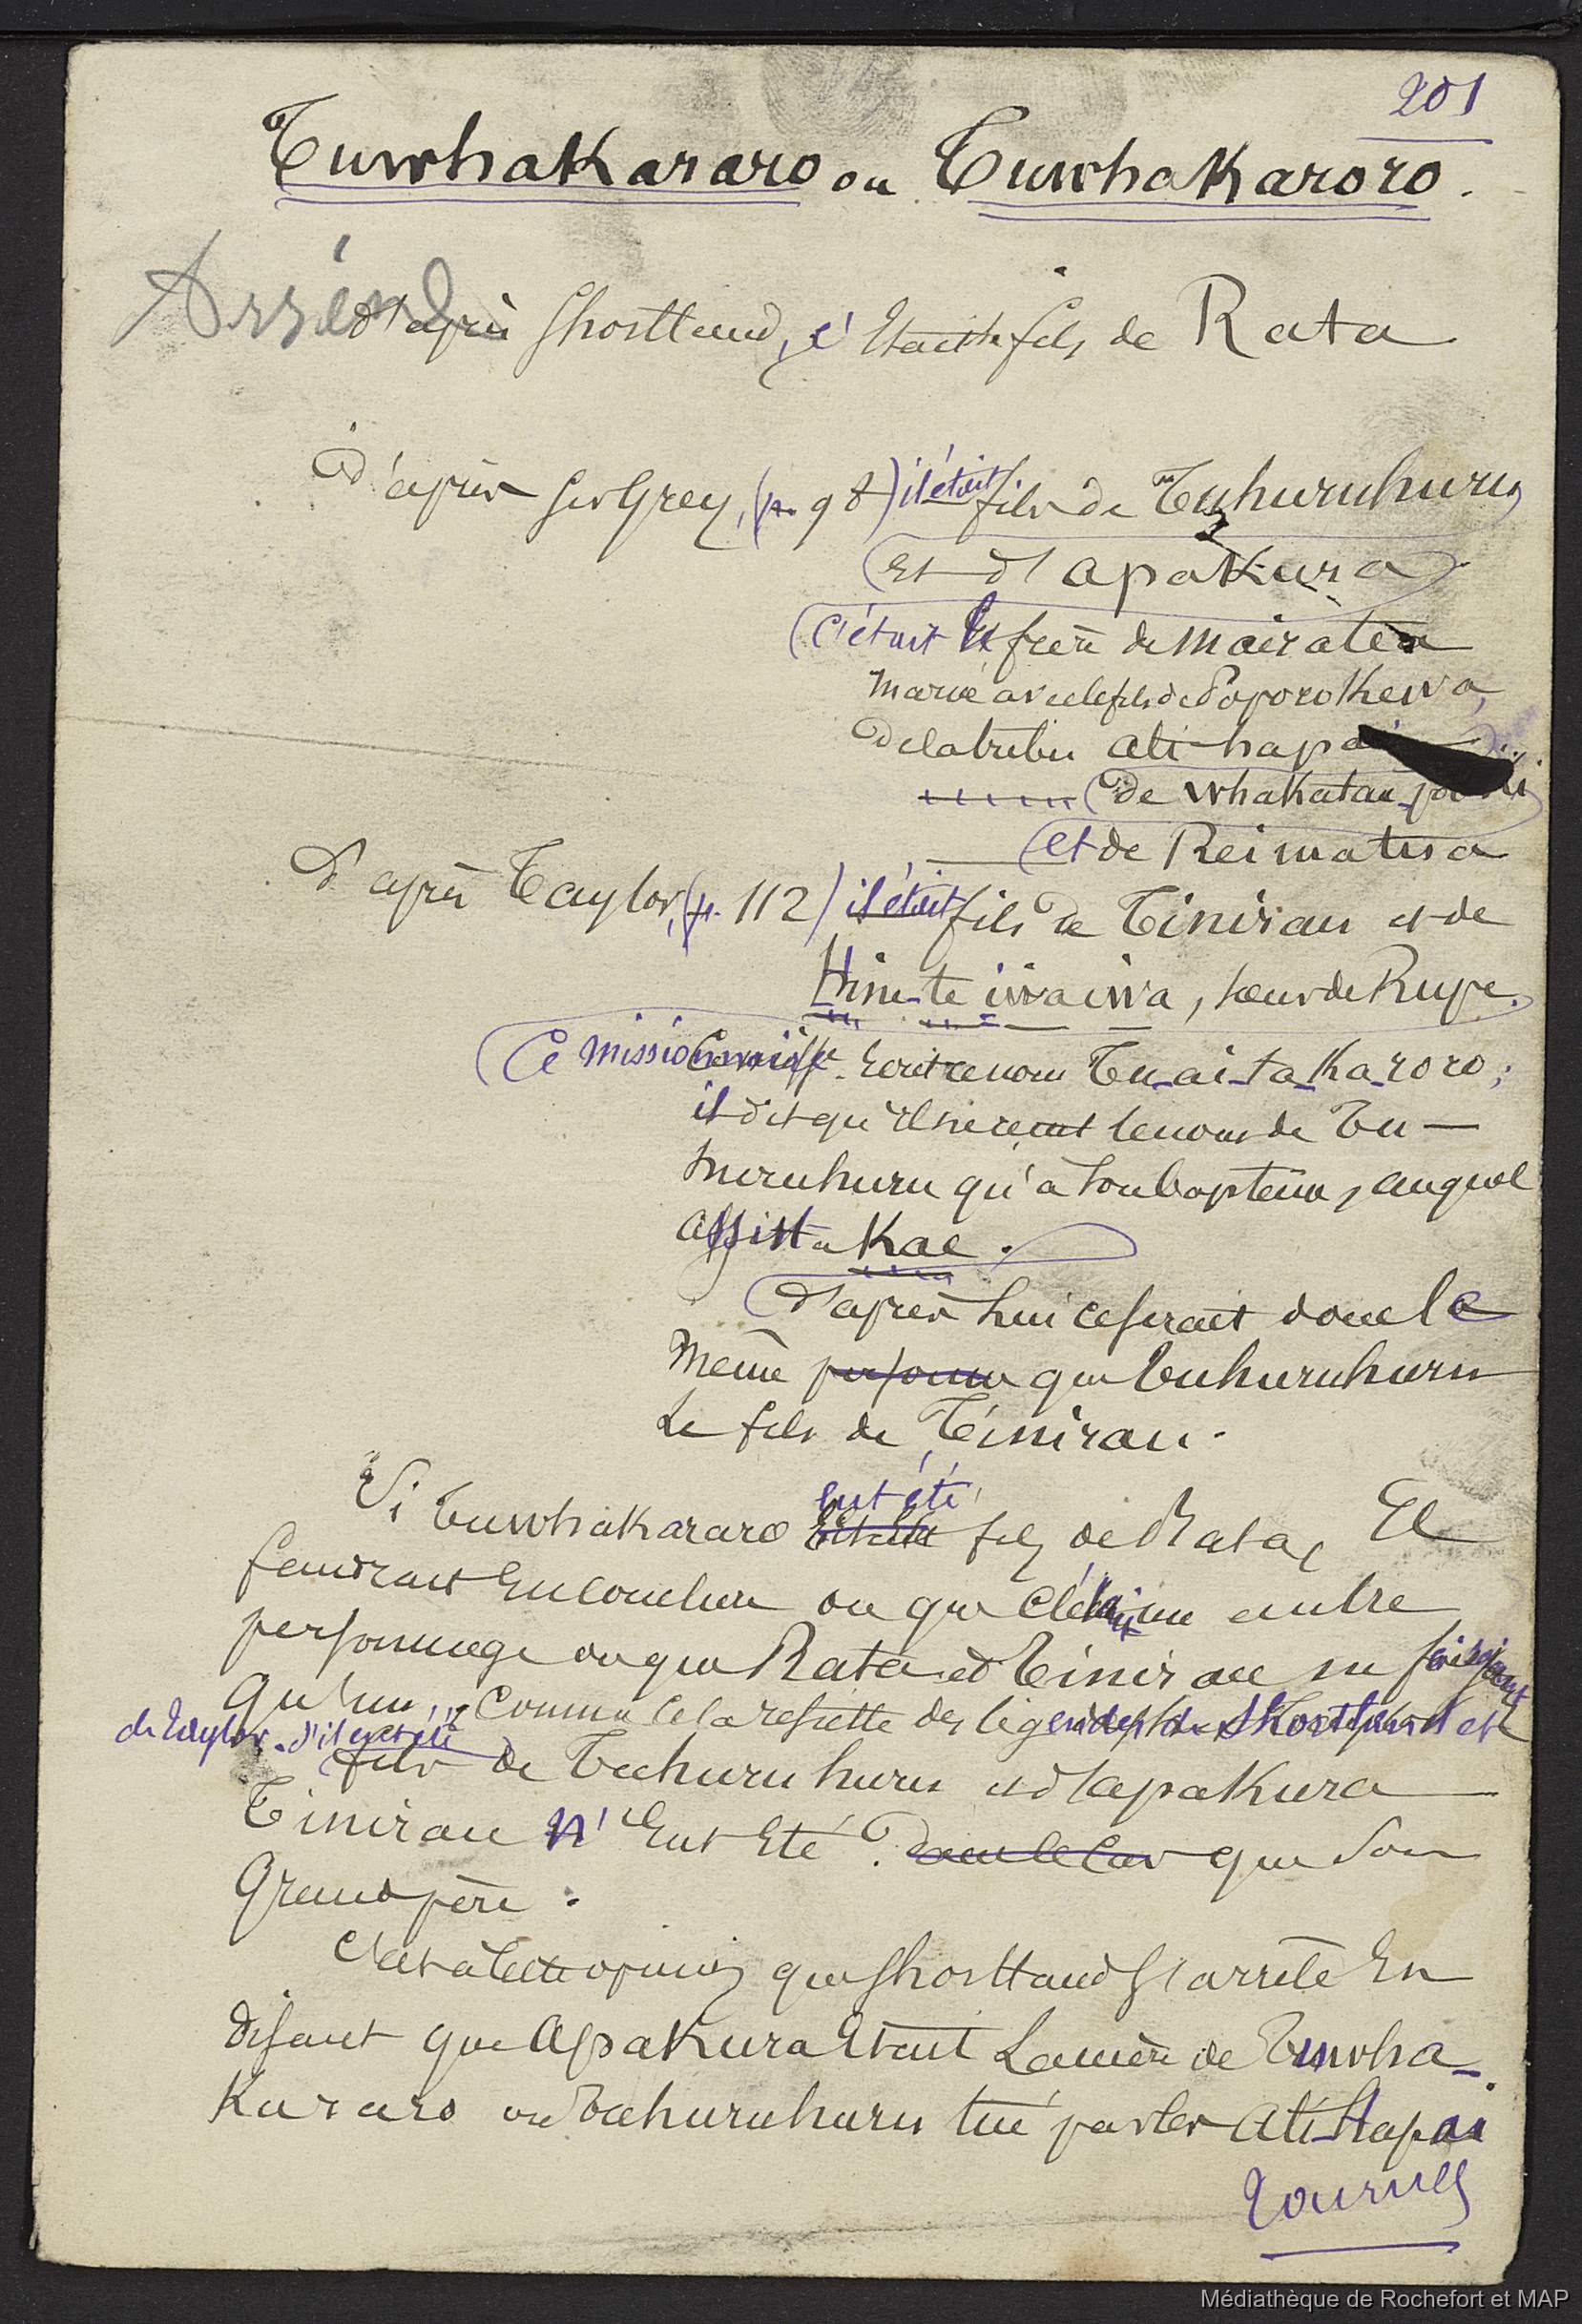 201
Tuwhakararo ou Tuwhakaroro.
d'après Shortland, c'était le fils de Rata
d'après Sir Grey, (p. 98) il était fils de Tuhuruhuru
et d'apakura
c'était le frère de Mairatea
marié avec le fils de Poporokewa,
de la tribu ati-hapai
de whakatau
et de Reimatua
d'après Taylor, (p. 112) il était fils de Tinirau et de
Hine-te iwaiwa, sœur de Rupe.
Ce missionnaire écrit ce nom Tu-ai-ta-ka-roro;
il dit qu'il ne reçut le nom de Tu-
huruhuru qu'à son baptême, auquel
assista Kae.
d'après lui ce serait donc le
même personne que Tuhuruhuru
le fils de Tinirau.
eut été
Si Tuwhakararo fils de Rata, Il
faudrait en conclure ou que c'était un autre
personnage ou que Rata et Tinirau ne faisaient
qu'un, comme cela resulte des légendes de Shortland et
de Taylor. s'il eut été
fils de Tuhuruhuru et d'apakura
Tinirau n'eut été dans le cas que son
Grand père.
C'est à cette opinion que Shortland s'arrête en
disant que Apakura était la mère de Tuwha-
kararo ou Tuhuruhuru tué par les Ati-Hapai
Tournez
Médiathèque de Rochefort et MAP